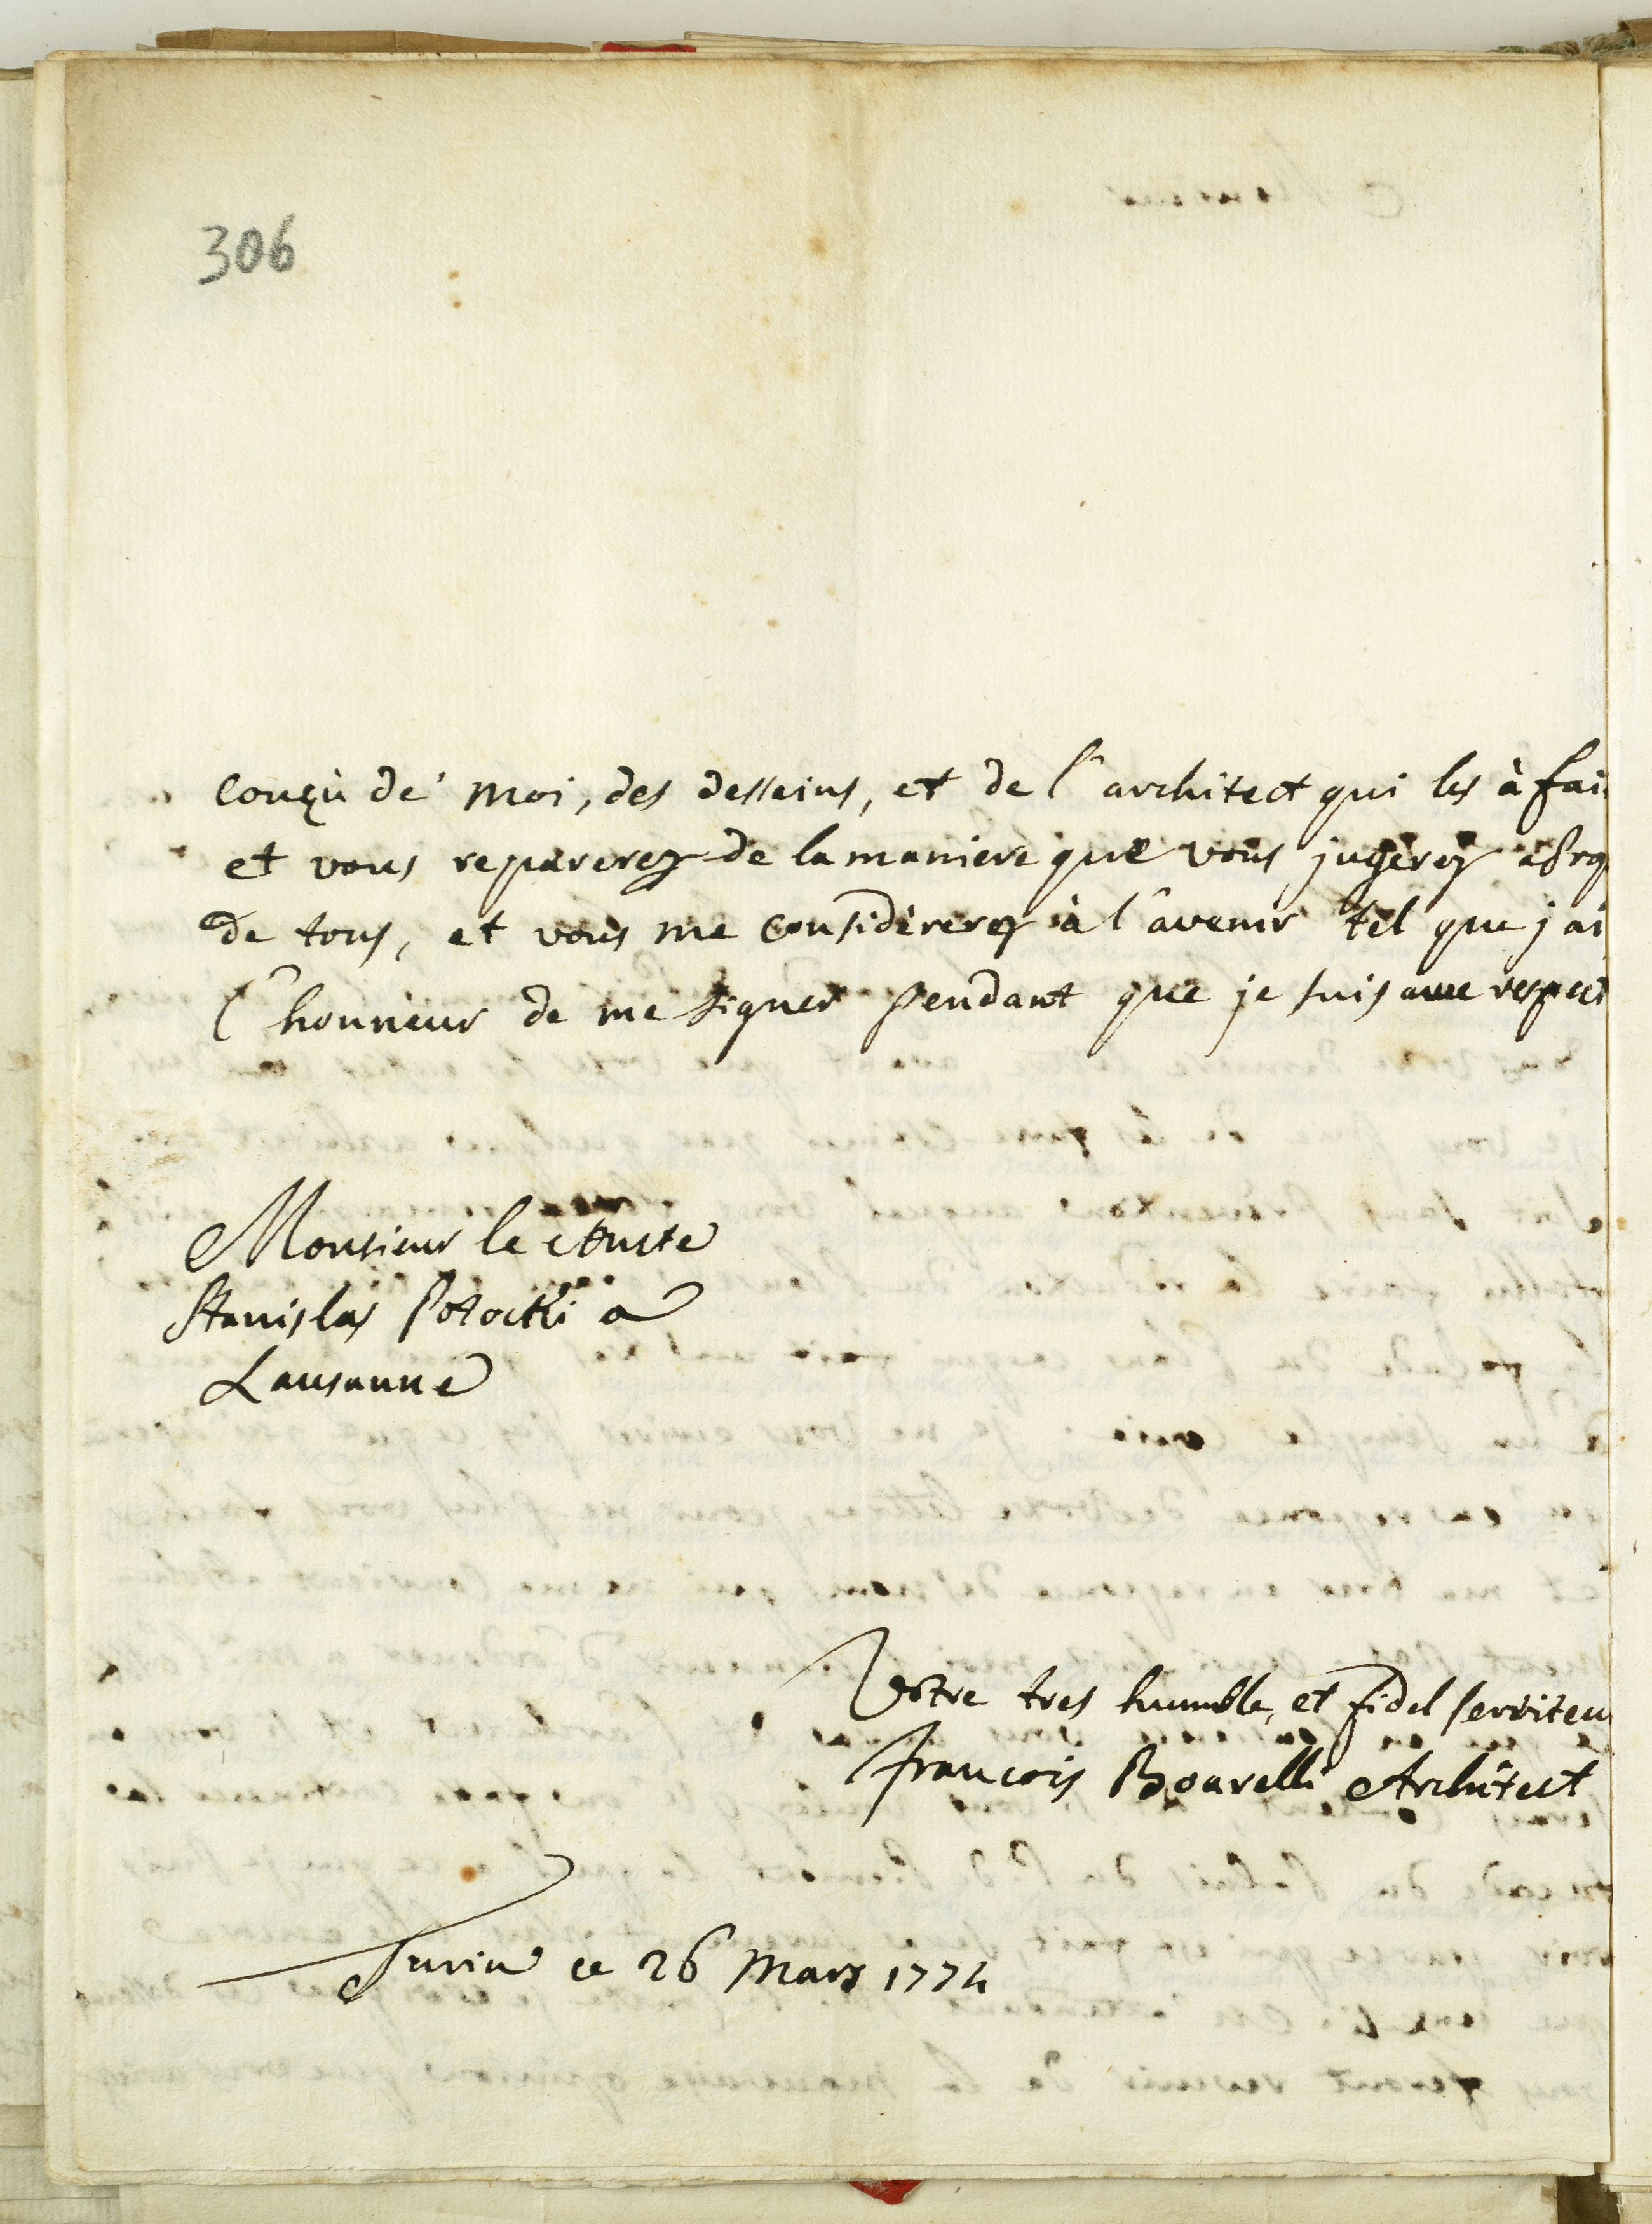 306
conçù de' moi, des desseins, et de l'architect qui les à fai
et vous reparerez de la maniere que vous jugerez
de tous, et vous me considèrerez à l'avenir tel que j'ai
l'honneur de me signer pendant que je suis avec respect
Monsieur le Comte
Stanislas Potocki a
Lausanne
Votre tres humble, et fidel serviteu
francois Boarelli Architect
Turin ce 26 Mars 1774